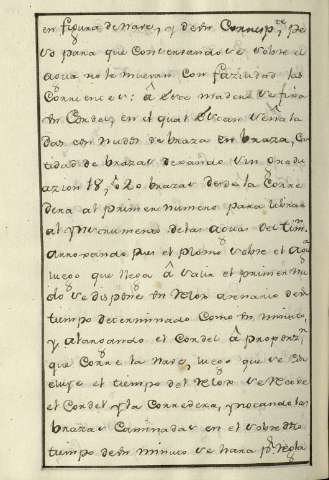 en figura de Nave, y de un Correspte pe
so para que Conservandose sobre el
agua no le muevan con facilidad las
Corrientes: â este madero se fixa
un Cordel, en el qual Estan señala
das con nudos de braza en braza, Can
tidad de brazas dexando sin one du
azion 18, ô 20 brazas desde la Corre
dera al primer numero para librarse
al de las aguas del tim
arrojando pues el plomo sobre el agua
luego que llega â salir el primer nu
do se dispone un Relox arenario de un
tiempo determinado Como un minuto,
y alargando el Cordel â proporzn
que Corre la Nave, luego que se Con
cluye el tiempo del Relox se Recoge
el Cordel y la Corredera, y notando las
brazas Caminadas en el sobre dho
tiempo de un minuto se hara pr Regla